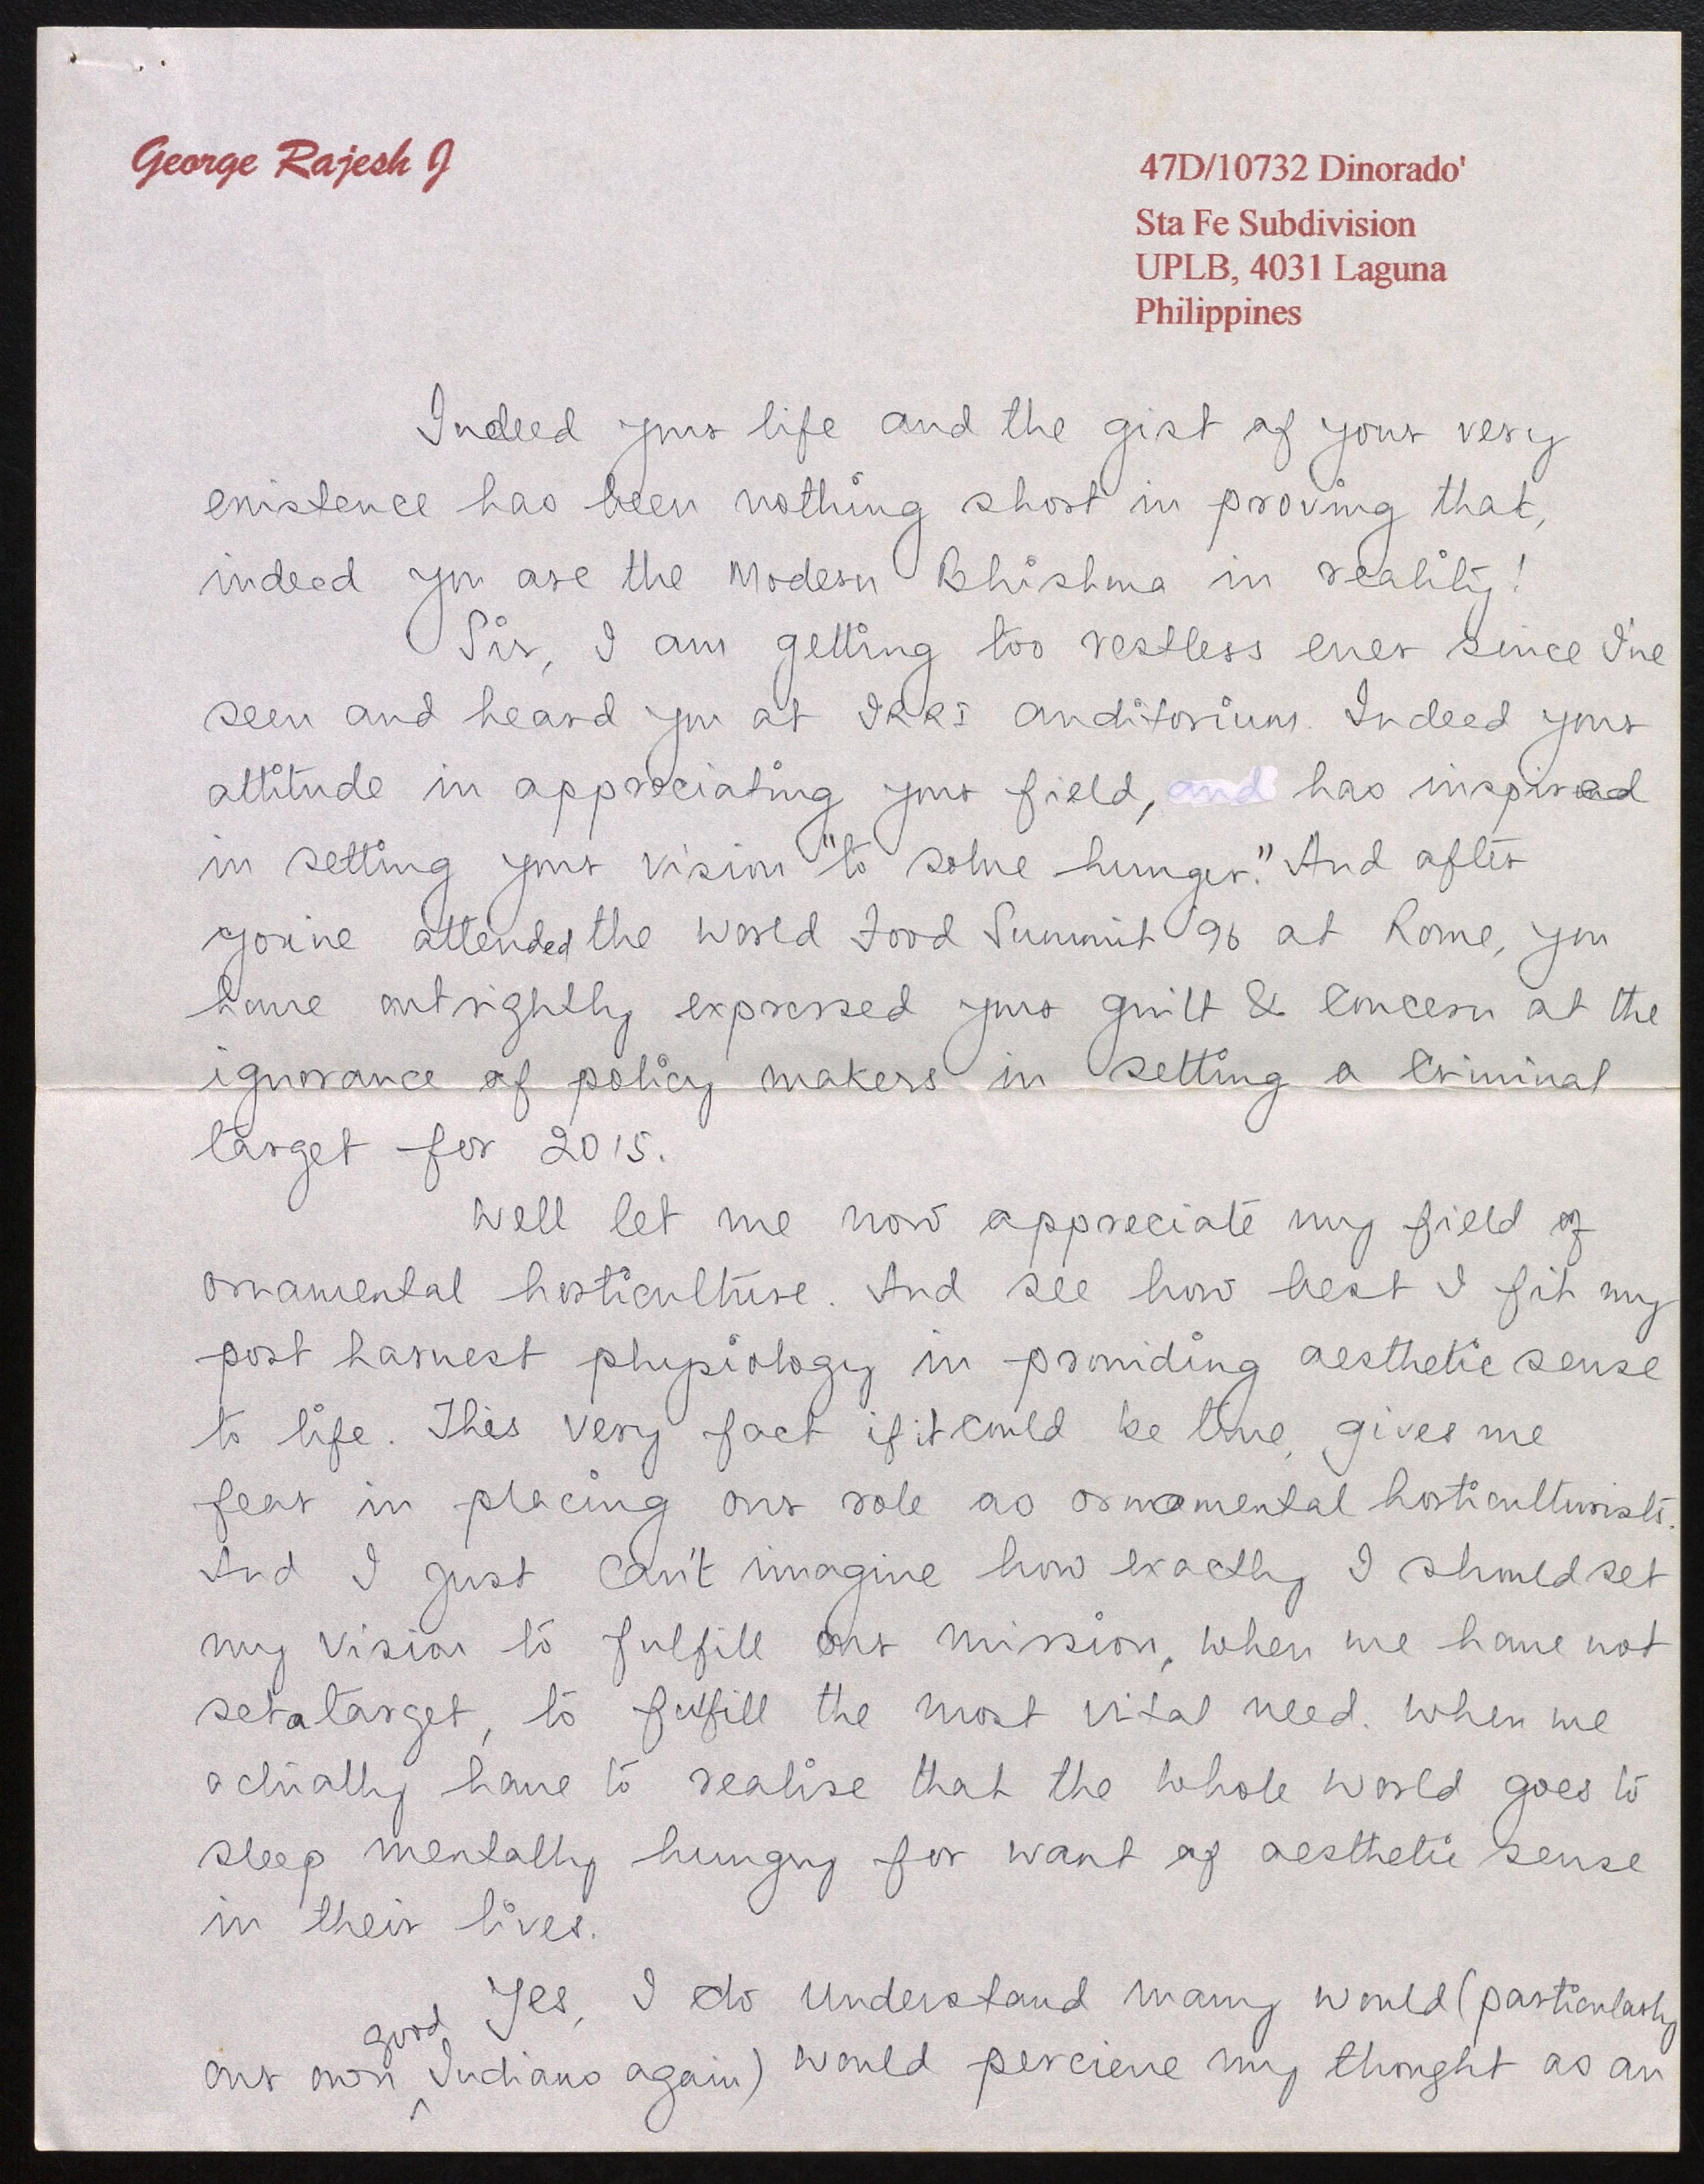 George Rajesh J
47D/10732 Dinorado'
Sta Fe Subdivision
UPLB, 4031 Laguna
Philippines
Indeed your life and the gist of your very
existence has been nothing short in proving that,
indeed you are the Modern Bhishma in reality!
Sir, I am getting too restless ever since I've
seen and heard you at IRRI auditorium. Indeed your
attitude in appreciating your field, and has inspired
in setting your vision "to solve hunger." And after
you've attended the World Food Summit '96 at Rome, you
have outrightly expressed your guilt & concern at the
ignorance of policy makers in setting a criminal
target for 2015.
Well let me now appreciate my field of
ornamental horticulture. And see how best I fit my
post harvest physiology in providing aesthetic sense
to life. This very fact if it could be true, gives me
fear in placing our role as ornamental horticulturists.
And I just can't imagine how exactly I should set
my vision to fulfill our mission, when we have not
set a target, to fulfill the most vital need. When we
actually have to realise that the whole world goes to
sleep mentally hungry for want of aesthetic sense
in their lives.
Yes, I do understand many would (particularly
our own good Indians again) would percieve my thought as an